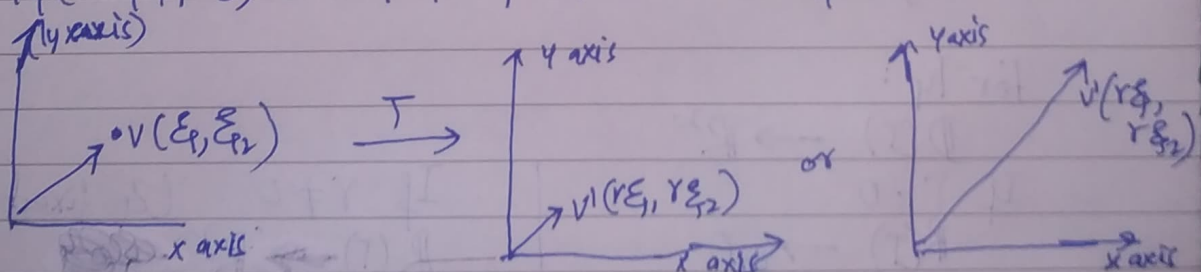 (y xaxis)
•V(ξ1, ξ2)
x axis
T
y axis
V'(rξ1, rξ2)
x axis
or
y axis
V'(rξ1,
rξ2)
x axis